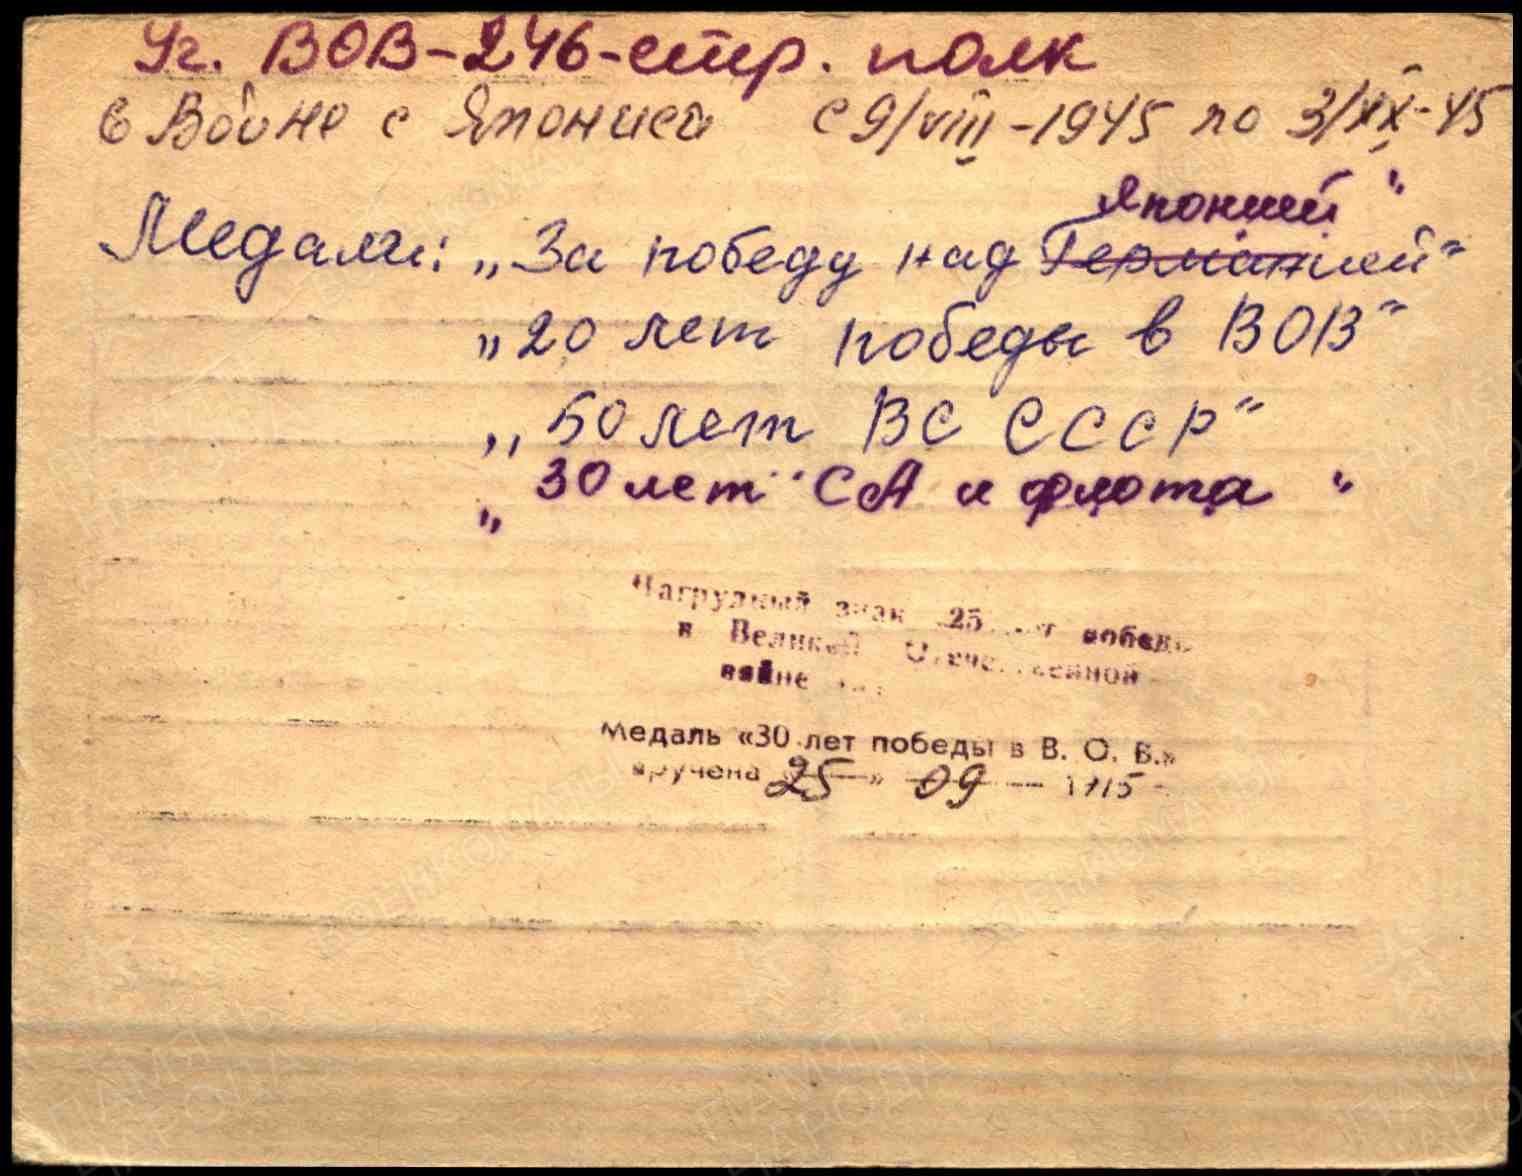 Уч. ВОВ-246-стр. полк
в Войне с Японией с 9/VIII-1945 по 3/IX-45
Японией"
Медали: „За победу над Германией"
„20 лет победы в ВОВ"
„50 лет ВС СССР"
„30 лет СА и флота"
Нагрудный знак 25 лет победы
в Великой Отечественной
войне
Медаль «30 лет победы в В. О. В.»
вручена «25» 09